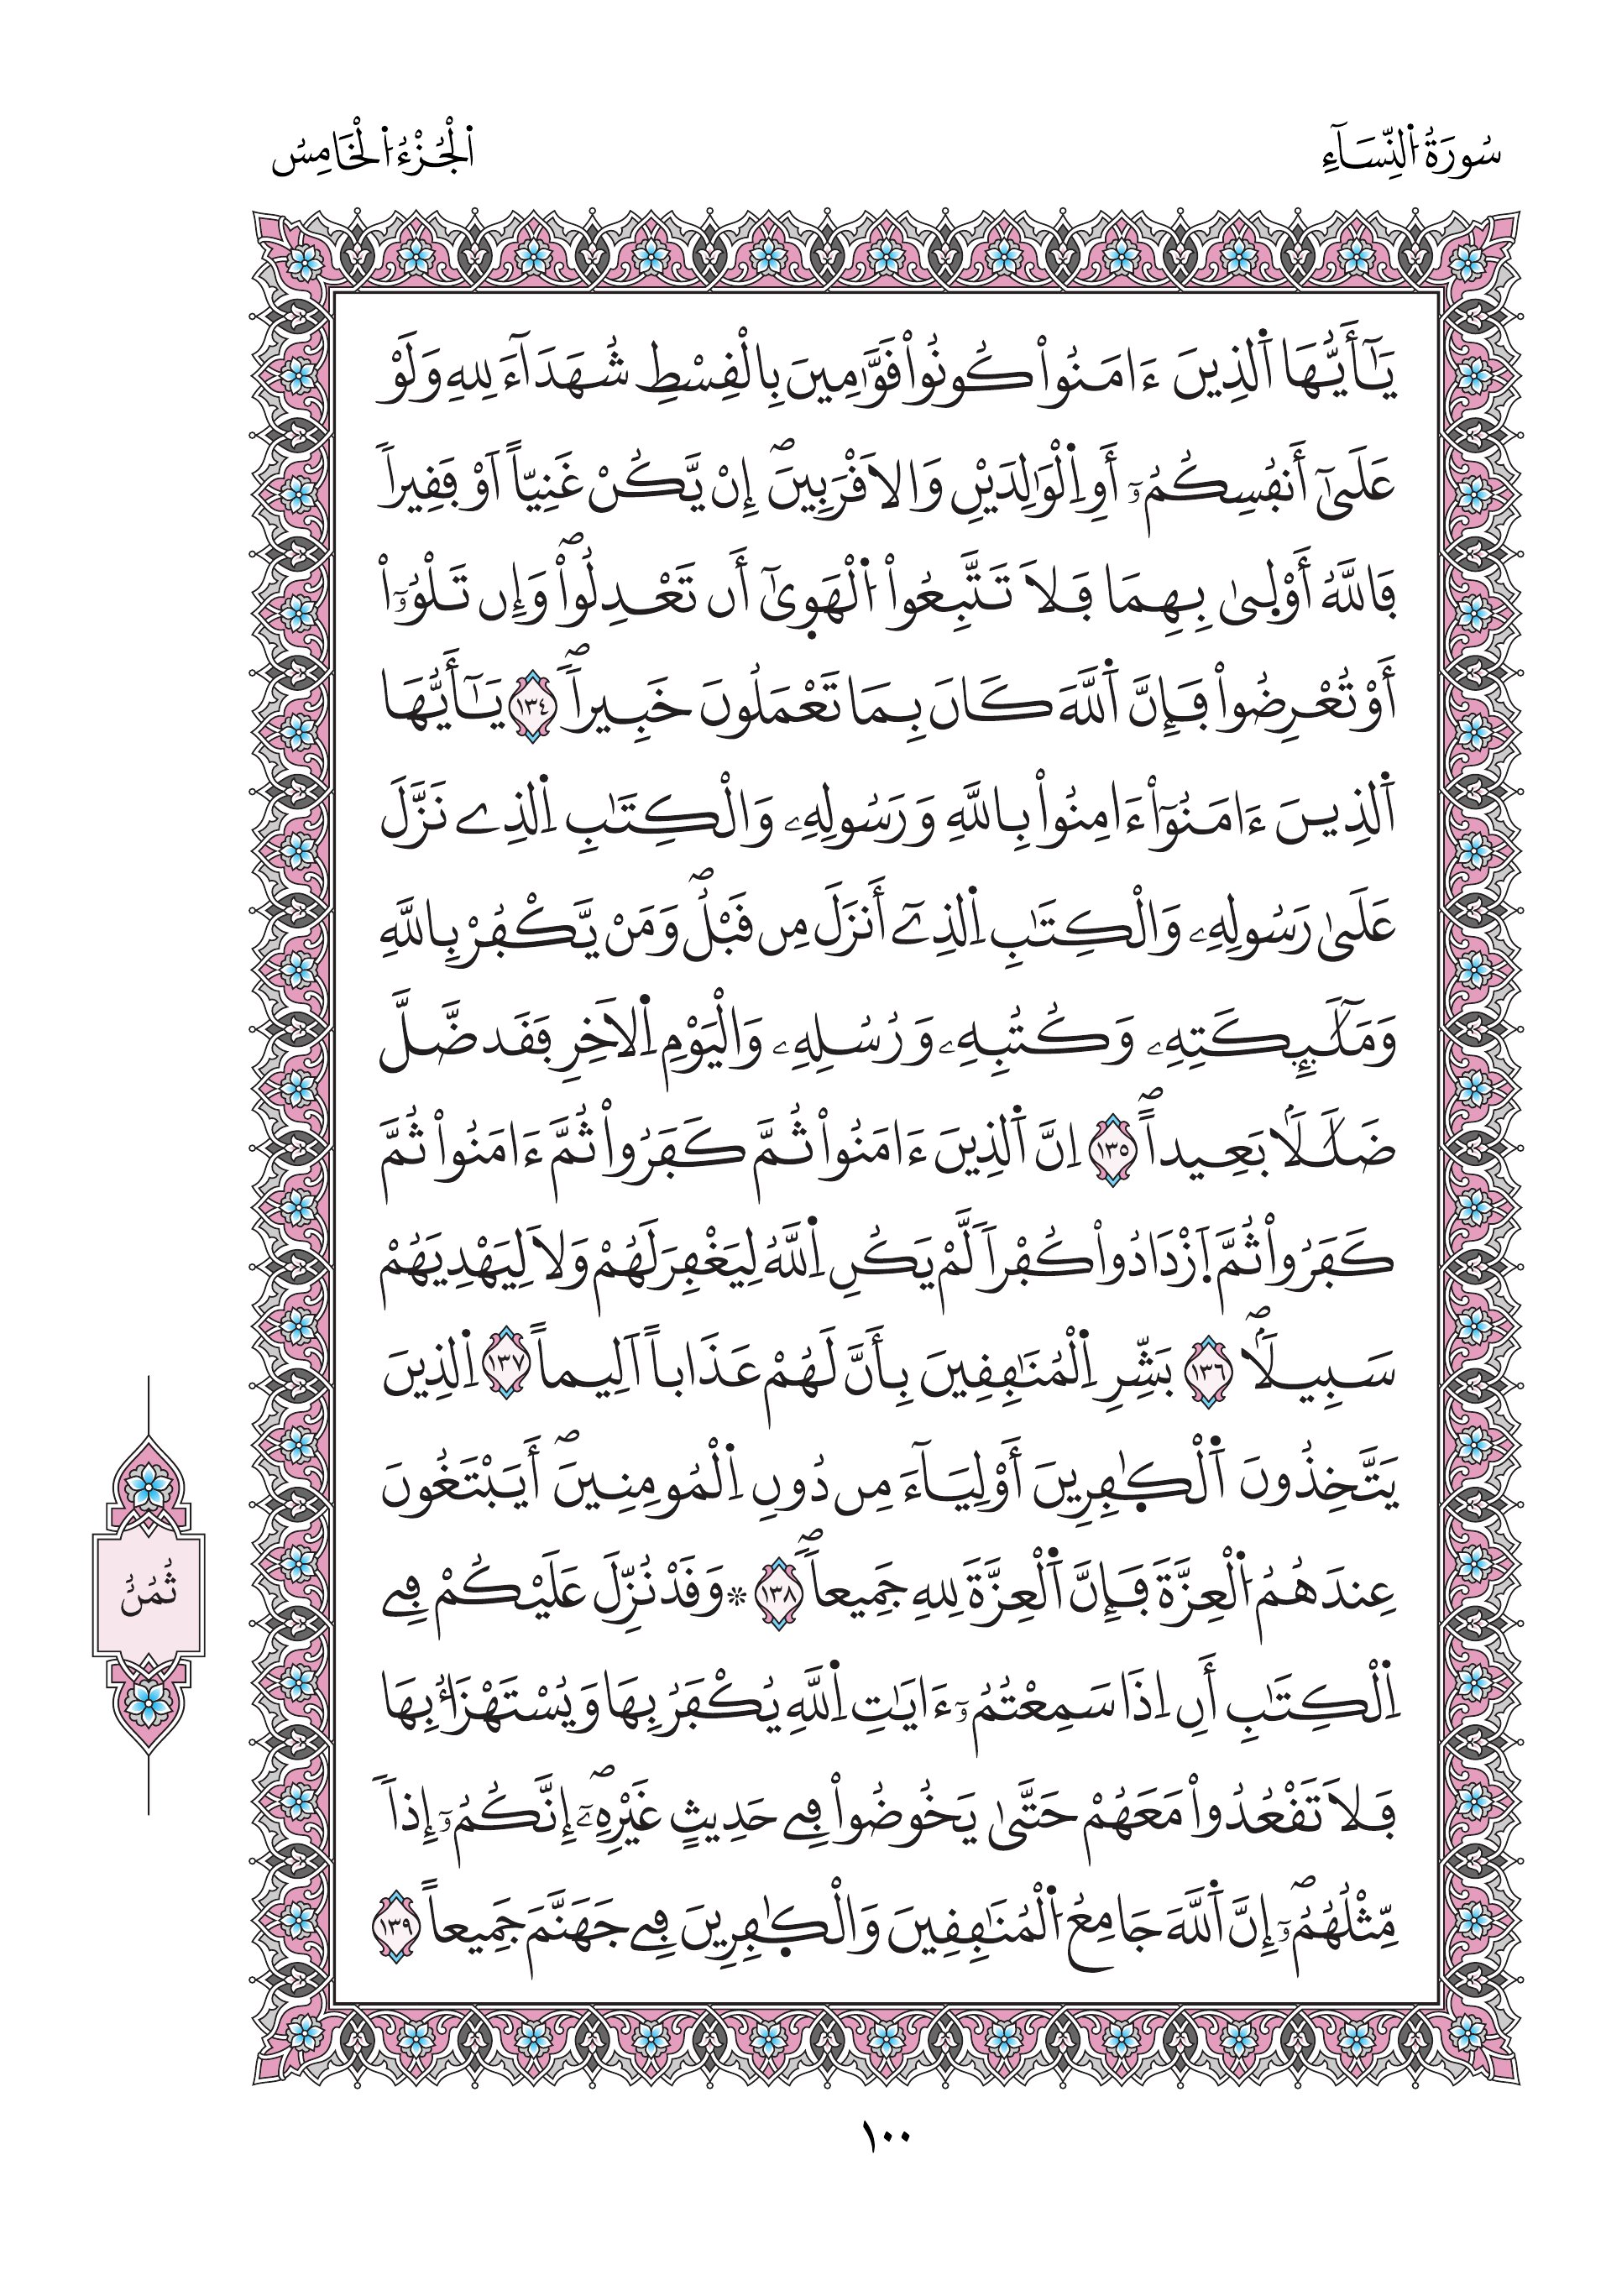 سُورَةُ اُ۬لنِّسَآءِ
اَ۬لْجُزْءُ اُ۬لْخَامِسُ
يَٰٓأَيُّهَا اَ۬لذِينَ ءَامَنُواْ كُونُواْ قَوَّٰمِينَ بِالْقِسْطِ شُهَدَآءَ لِلهِ وَلَوْ
عَلَىٰٓ أَنفُسِكُمُۥٓ أَوِ اِ۬لْوَٰلِدَيْنِ وَالَاقْرَبِينَۖ إِنْ يَّكُنْ غَنِيّاً اَوْ فَقِيراٗ
فَاللَّهُ أَوْلَىٰ بِهِمَا فَلَا تَتَّبِعُواْ اُ۬لْهَوَىٰٓ أَن تَعْدِلُواْۖ وَإِن تَلْوُۥٓاْ
أَوْ تُعْرِضُواْ فَإِنَّ اَ۬للَّهَ كَانَ بِمَا تَعْمَلُونَ خَبِيراٗۖ ١٣٤ يَٰٓأَيُّهَا
اَ۬لذِينَ ءَامَنُوٓاْ ءَامِنُواْ بِاللَّهِ وَرَسُولِهِۦ وَالْكِتَٰبِ اِ۬لذِے نَزَّلَ
عَلَىٰ رَسُولِهِۦ وَالْكِتَٰبِ اِ۬لذِےٓ أَنزَلَ مِن قَبْلُۖ وَمَنْ يَّكْفُرْ بِاللَّهِ
وَمَلَٰٓئِكَتِهِۦ وَكُتُبِهِۦ وَرُسُلِهِۦ وَالْيَوْمِ اِ۬لَاخِرِ فَقَد ضَّلَّ
ضَلَٰلَاۢ بَعِيداًۖ ١٣٥ اِنَّ اَ۬لذِينَ ءَامَنُواْ ثُمَّ كَفَرُواْ ثُمَّ ءَامَنُواْ ثُمَّ
كَفَرُواْ ثُمَّ اَ۪زْدَادُواْ كُفْراٗ لَّمْ يَكُنِ اِ۬للَّهُ لِيَغْفِرَ لَهُمْ وَلَا لِيَهْدِيَهُمْ
سَبِيلَاۢۖ ١٣٦ بَشِّرِ اِ۬لْمُنَٰفِقِينَ بِأَنَّ لَهُمْ عَذَاباً اَلِيماً ١٣٧ اِ۬لذِينَ
يَتَّخِذُونَ اَ۬لْكٰ۪فِرِينَ أَوْلِيَآءَ مِن دُونِ اِ۬لْمُومِنِينَۖ أَيَبْتَغُونَ
عِندَهُمُ اُ۬لْعِزَّةَ فَإِنَّ اَ۬لْعِزَّةَ لِلهِ جَمِيعاٗۖ ١٣٨ ۞ وَقَدْ نُزِّلَ عَلَيْكُمْ فِے
اِ۬لْكِتَٰبِ أَنِ اِذَا سَمِعْتُمُۥٓ ءَايَٰتِ اِ۬للَّهِ يُكْفَرُ بِهَا وَيُسْتَهْزَأُ بِهَا
فَلَا تَقْعُدُواْ مَعَهُمْ حَتَّىٰ يَخُوضُواْ فِے حَدِيثٍ غَيْرِهِۦٓۖ إِنَّكُمُۥٓ إِذاٗ
مِّثْلُهُمُۥٓۖ إِنَّ اَ۬للَّهَ جَامِعُ اُ۬لْمُنَٰفِقِينَ وَالْكٰ۪فِرِينَ فِے جَهَنَّمَ جَمِيعاً ١٣٩
ثُمُنُ
١٠٠